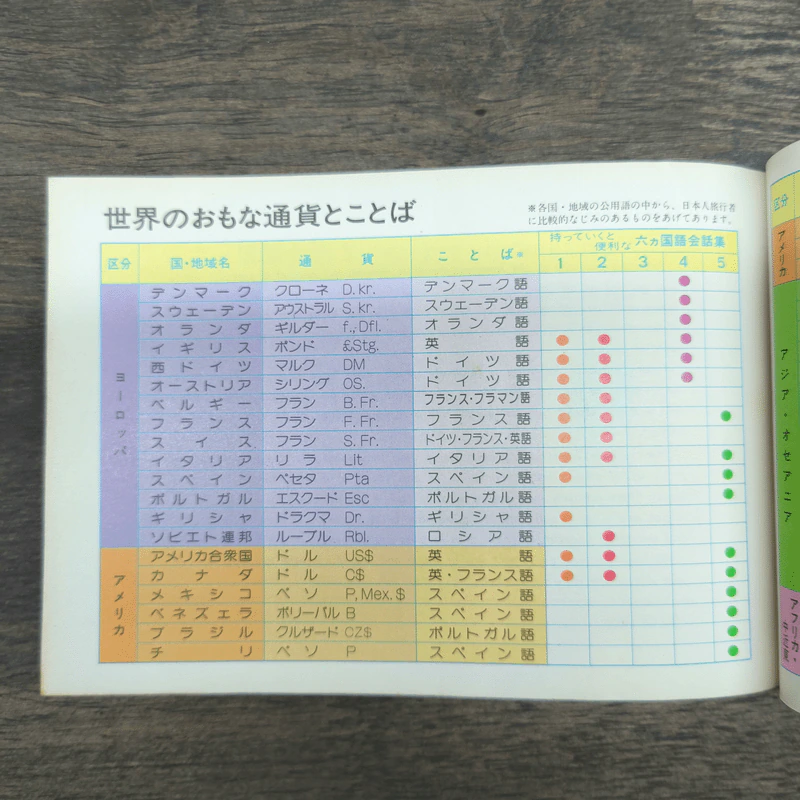 世界のおもな通貨とことば
※各国・地域の公用語の中から、日本人旅行者
に比較的なじみのあるものをあげてあります。
区分 国・地域名 通貨 ことば※ 持っていくと便利な 六ヵ国語会話集
1 2 3 4 5
ヨーロッパ
デンマーク クローネ D.kr. デンマーク語
スウェーデン アウストラル S.kr. スウェーデン語
オランダ ギルダー f.,Dfl. オランダ語
イギリス ポンド £Stg. 英語
西ドイツ マルク DM ドイツ語
オーストリア シリング OS. ドイツ語
ベルギー フラン B.Fr. フランス・フラマン語
フランス フラン F.Fr. フランス語
スイス フラン S.Fr. ドイツ・フランス・英語
イタリア リラ Lit イタリア語
スペイン ペセタ Pta スペイン語
ポルトガル エスクード Esc ポルトガル語
ギリシャ ドラクマ Dr. ギリシャ語
ソビエト連邦 ルーブル Rbl. ロシア語
アメリカ
アメリカ合衆国 ドル US$ 英語
カナダ ドル C$ 英・フランス語
メキシコ ペソ P,Mex.$ スペイン語
ベネズエラ ボリーバル B スペイン語
ブラジル クルザード CZ$ ポルトガル語
チリ ペソ P スペイン語
区分
アメリカ
アジア・オセアニア
アフリカ・中近東